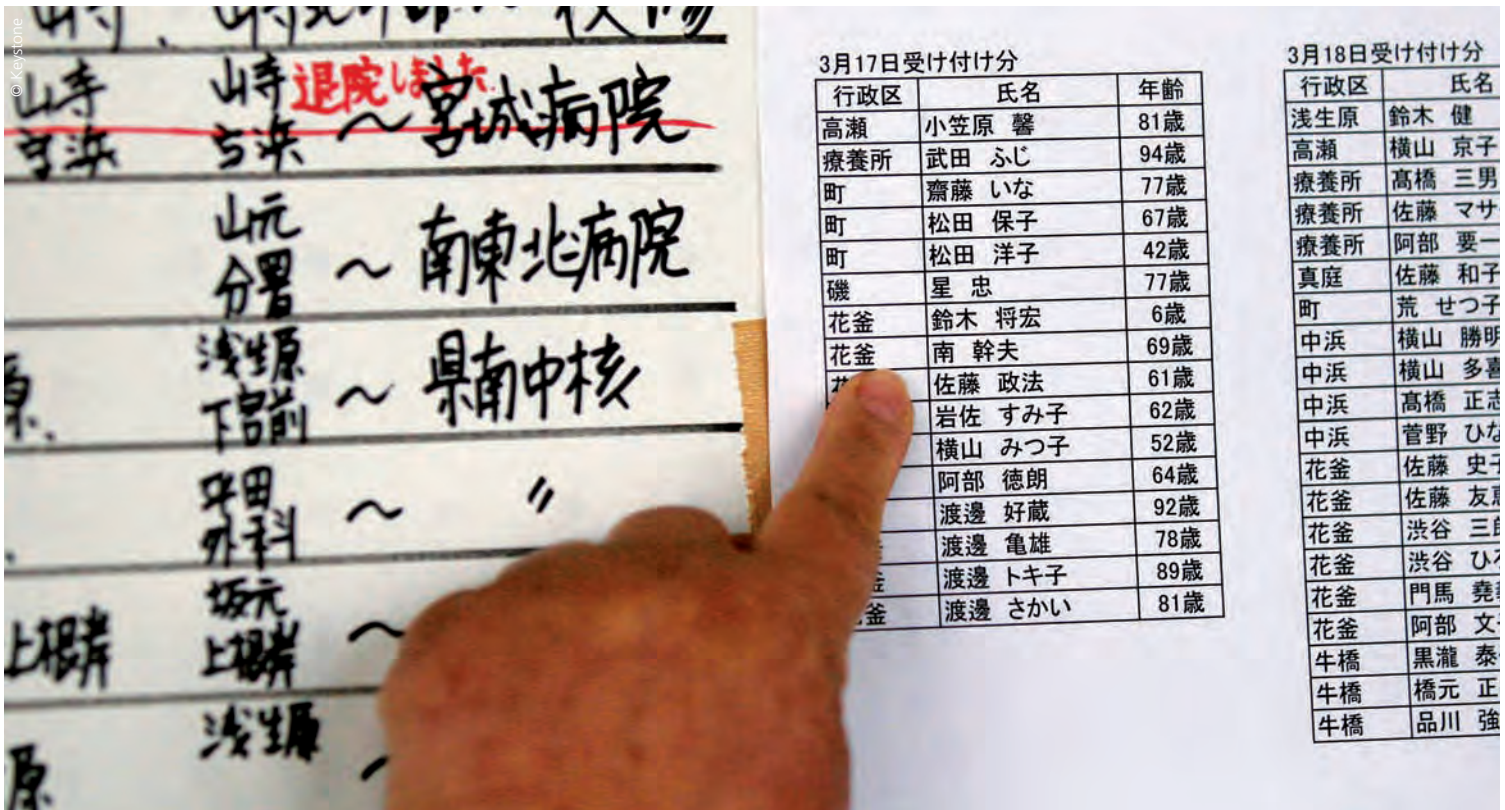 © Keystone
山寺 山寺 退院しました
弓浜 ～ 宮城病院
山元
分署 ～ 南東北病院
浅生原
下宮前 ～ 県南中核
原、
平田
外科 ～ 〃
坂元
上根岸 上根岸 ～
浅生原
原 ～
3月17日受け付け分
行政区 氏名 年齢
高瀬 小笠原 馨 81歳
療養所 武田 ふじ 94歳
町 齋藤 いな 77歳
町 松田 保子 67歳
町 松田 洋子 42歳
磯 星 忠 77歳
花釜 鈴木 将宏 6歳
花釜 南 幹夫 69歳
花 佐藤 政法 61歳
岩佐 すみ子 62歳
横山 みつ子 52歳
阿部 徳朗 64歳
渡邊 好蔵 92歳
渡邊 亀雄 78歳
釜 渡邊 トキ子 89歳
釜 渡邊 さかい 81歳
3月18日受け付け分
行政区 氏名
浅生原 鈴木 健
高瀬 横山 京子
療養所 髙橋 三男
療養所 佐藤 マサ
療養所 阿部 要一
真庭 佐藤 和子
町 荒 せつ子
中浜 横山 勝明
中浜 横山 多喜
中浜 髙橋 正志
中浜 菅野 ひな
花釜 佐藤 史子
花釜 佐藤 友恵
花釜 渋谷 三郎
花釜 渋谷 ひろ
花釜 門馬 堯
花釜 阿部 文
牛橋 黒瀧 泰
牛橋 橋元 正
牛橋 品川 強